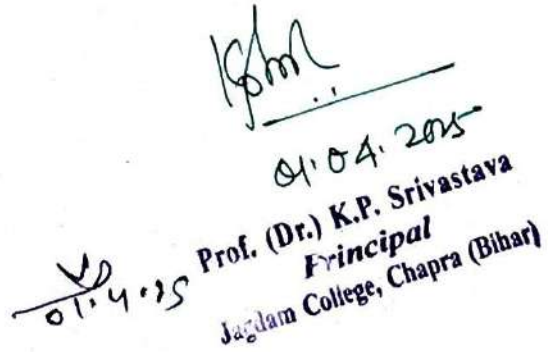 01.04.2025
Prof. (Dr.) K.P. Srivastava
Principal
Jagdam College, Chapra (Bihar)
01.4.25